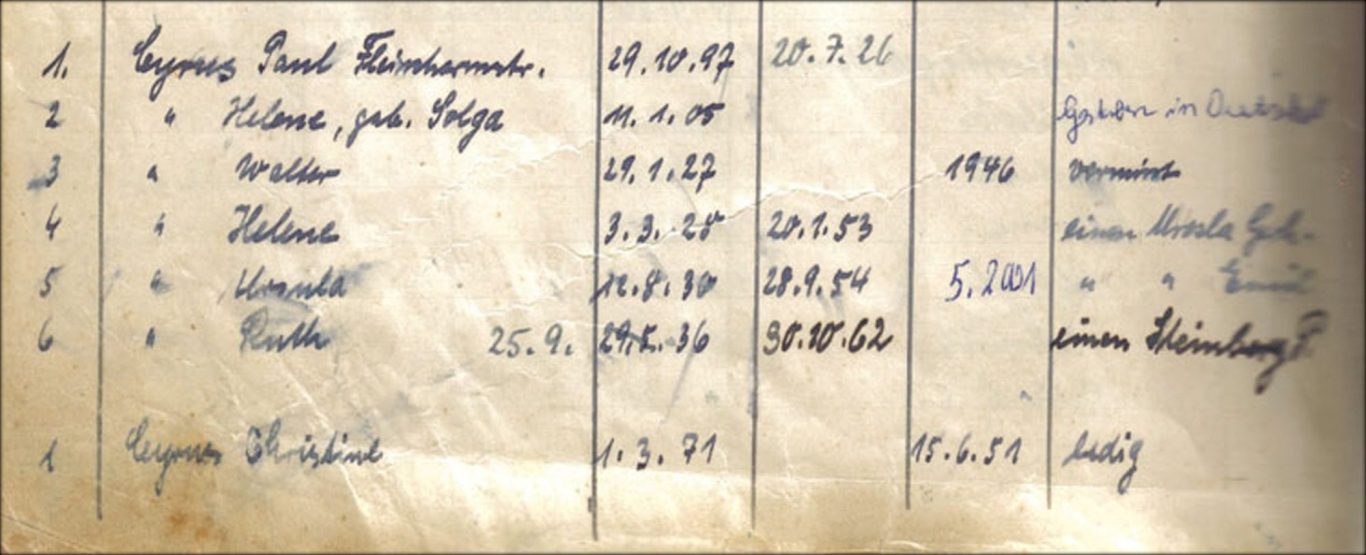 1. Cyrus Paul Fleischermstr. 29.10.97 20.7.26
2 " Helene, geb. Solga 11.1.05 in
3 " Walter 29.1.27 1946 vermisst
4 " Helene 3.3.28 20.1.53 einen Mrosla
5 " Ursula 12.8.30 28.9.54 5.2001 " "
6 " Ruth 25.9. 29.5.36 30.10.62 einen Steinberg
1 Cyrus Christine 1.3.71 15.6.51 ledig